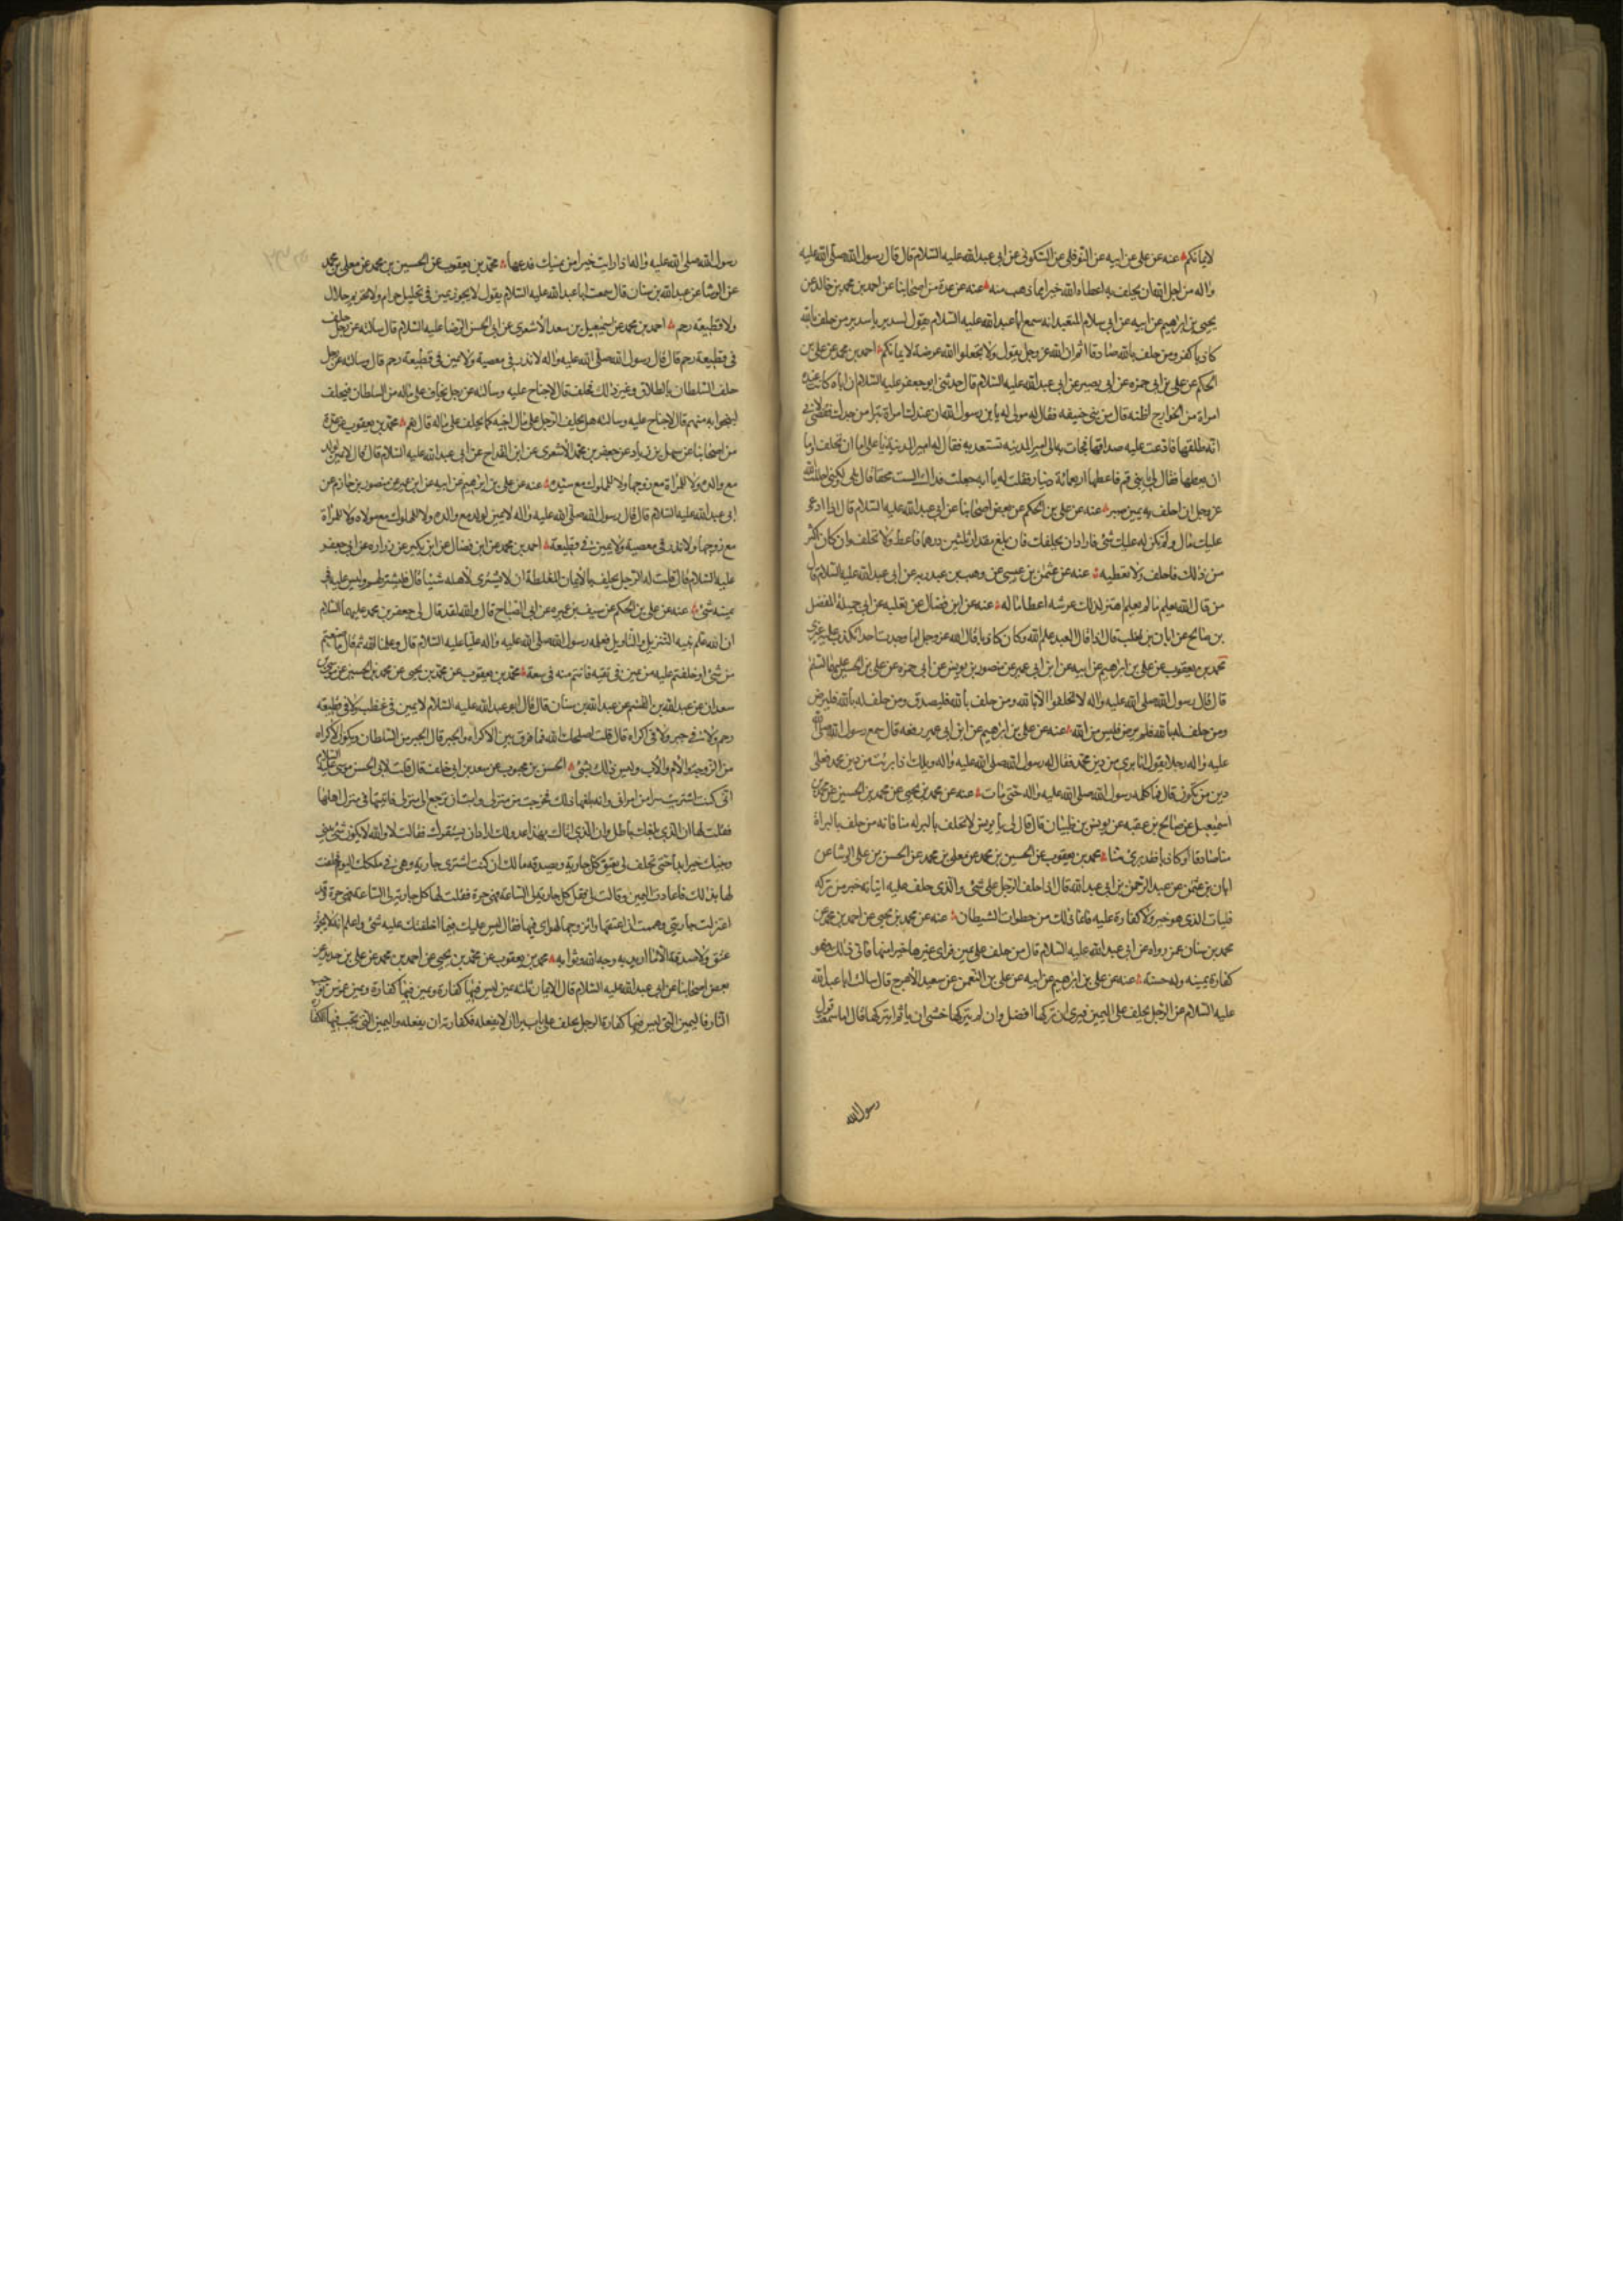 لايمانكم عنه عن علي عن ابيه عن النوفلي عن السكوني عن ابي عبد الله عليه السلام قال قال رسول الله صلى الله عليه
واله من اجل الله ان يحلف به اعطاه الله خيرا مما ذهب منه عنه عن عدة من اصحابنا عن احمد بن محمد بن خالد عن
يحيى بن ابرهيم عن ابيه عن ابي سلام المتعبد انه سمع ابا عبد الله عليه السلام يقول لسدير يا سدير من حلف بالله
كاذبا كفر ومن حلف بالله صادقا اثم ان الله عز وجل يقول ولا تجعلوا الله عرضة لايمانكم احمد بن محمد عن علي بن
الحكم عن علي بن ابي حمزه عن ابي بصير عن ابي عبد الله عليه السلام قال حدثني ابو جعفر عليه السلام ان اباه كانت عنده
امراة من الخوارج اظنه قال من بني حنيفه فقال له مولى له يا بن رسول الله ان عندك امراة تبرا من جدك فقضي لابي
انه طلقها فادعت عليه صداقها فجات به الى امير المدينه تستعديه فقال له امير المدينة يا علي اما ان تحلف واما
ان يعطيها فقال لي يا بني قم فاعطها اربعمائة دينار فقلت له يا ابه جعلت فداك الست محقا قال بلى يا بني ولكني اجللت الله
عز وجل ان احلف به يمين صبر عنه عن علي بن الحكم عن بعض اصحابنا عن ابي عبد الله عليه السلام قال اذا ادعى
عليك مال ولم يكن له عليك شئ فاراد ان يحلفك فان بلغ مقدار ثلثين درهما فاعطه ولا تحلف وان كان اكثر
من ذلك فاحلف ولا تعطيه عنه عن عثمن بن عيسى عن وهب بن عبد ربه عن ابي عبد الله عليه السلام قال
من قال الله يعلم ما لم يعلم اهتز لذلك عرشه اعظاما له عنه عن ابن فضال عن ثعلبه عن ابي جميلة المفضل
بن صالح عن ابان بن تغلب قال اذا قال العبد علم الله وكان كاذبا قال الله عز وجل اما وجدت احدا تكذب عليه غيري
محمد بن يعقوب عن علي بن ابرهيم عن ابيه عن ابن ابي عمير عن منصور بن يونس عن ابي حمزه عن علي بن الحسين عليهما السلم
قال قال رسول الله صلى الله عليه واله لا تحلفوا الا بالله ومن حلف بالله فليصدق ومن حلف له بالله فليرض
ومن حلف له بالله فلم يرض فليس من الله عنه عن علي بن ابرهيم عن ابن ابي عمير رفعه قال سمع رسول الله صلى الله
عليه واله رجلا يقول انا بري من دين محمد فقال له رسول الله صلى الله عليه واله ويلك اذا برئت من دين محمد فعلى
دين من تكون قال فما كلمه رسول الله صلى الله عليه واله حتى مات عنه عن محمد بن يحيى عن محمد بن الحسين عن محمد بن
اسمعيل عن صالح بن عقبه عن يونس بن ظبيان قال قال لي يا يونس لا تحلف بالبراه منا فانه من حلف بالبراة
منا صادقا او كاذبا فقد برئ منا محمد بن يعقوب عن الحسين بن محمد عن معلى بن محمد عن الحسن بن علي الوشا عن
ابان بن عثمن عن عبد الرحمن بن ابي عبد الله قال اذا حلف الرجل على شئ والذي حلف عليه اتيانه خير من تركه
فليات الذي هو خير ولا كفارة عليه فانما ذلك من خطوات الشيطان عنه عن محمد بن يحيى عن احمد بن محمد عن
محمد بن سنان عمن رواه عن ابي عبد الله عليه السلام قال من حلف على يمين فراى غيرها خيرا منها فاتى ذلك فهو
كفارة يمينه وله حسنة عنه عن علي بن ابرهيم عن ابيه عن علي بن النعمن عن سعيد الاعرج قال سالت ابا عبد الله
عليه السلام عن الرجل يحلف على اليمين فيرى ان تركها افضل وان لم يتركها خشي ان ياثم ايتركها قال اما سمعت قول
رسول الله
رسول الله صلى الله عليه واله اذا رايت خيرا من يمينك فدعها محمد بن يعقوب عن الحسين بن محمد عن معلى بن محمد
عن الوشا عن عبد الله بن سنان قال سمعت ابا عبد الله عليه السلام يقول لا يجوز يمين في تحليل حرام ولا تحريم حلال
ولا قطيعة رحم احمد بن محمد عن اسمعيل بن سعد الاشعري عن ابي الحسن الرضا عليه السلام قال سالته عن رجل حلف
في قطيعة رحم قال قال رسول الله صلى الله عليه واله لا نذر في معصية ولا يمين في قطيعة رحم قال وسالته عن رجل
حلف السلطان بالطلاق وغير ذلك فحلف قال لا جناح عليه وسالته عن رجل يخاف على ماله من السلطان فيحلف
لينجوا به منهم قال لا جناح عليه وسالته هل يحلف الرجل على مال اخيه كما يحلف على ماله قال نعم محمد بن يعقوب عن عدة
من اصحابنا عن سهل بن زياد عن جعفر بن محمد الاشعري عن ابن القداح عن ابي عبد الله عليه السلام قال قال لا يمين لولد
مع والده ولا للمراة مع زوجها ولا للمملوك مع سيده عنه عن علي بن ابرهيم عن ابيه عن ابن ابي عمير عن منصور بن حازم عن
ابي عبد الله عليه السلام قال قال رسول الله صلى الله عليه واله لا يمين لولد مع والده ولا للمملوك مع مولاه ولا للمراة
مع زوجها ولا نذر في معصية ولا يمين في قطيعة احمد بن محمد عن ابن فضال عن ابن بكير عن زراره عن ابي جعفر
عليه السلام قال قلت له الرجل يحلف بالايمان المغلظة ان لا يشتري لاهله شيئا قال فليشتر لهم وليس عليه في
يمينه شئ عنه عن علي بن الحكم عن سيف بن عميره عن ابي الصباح قال والله لقد قال لي جعفر بن محمد عليهما السلام
ان الله علم نبيه التنزيل والتاويل فعلمه رسول الله صلى الله عليه واله عليا عليه السلام قال وعلمنا الله ثم قال ما صنعتم
من شئ او حلفتم عليه من يمين في تقيه فانتم منه في سعة محمد بن يعقوب عن محمد بن يحيى عن محمد بن الحسين عن موسى بن
سعدان عن عبد الله بن القسم عن عبد الله بن سنان قال قال ابو عبد الله عليه السلام لا يمين في غضب ولا في قطيعه
رحم ولا في جبر ولا في اكراه قال قلت اصلحك الله فما فرق بين الاكراه والجبر قال الجبر من السلطان ويكون الاكراه
من الزوجة والام والاب وليس ذلك بشئ الحسن بن محبوب عن سعد بن ابي خلف قال قلت لابي الحسن موسى عليه السلام
اني كنت اشتريت سرا من امراتي وانه بلغها ذلك فخرجت من منزلي وابت ان ترجع الى منزلي فاتيتها في منزل اهلها
فقلت لها ان الذي بلغك باطل وان الذي اتاك بهذا عدو لك اراد ان يستفزك فقالت لا والله لا يكون شئ بيني
وبينك خير ابدا حتى تحلف لي بعتق كل جاريه وبصدقه مالك ان كنت اشتري جاريه وهي في ملكك اليوم فحلفت
لها بذلك فاعادت اليمين وقالت لي فقل كل جارية لي الساعة فهي حرة فقلت لها كل جارية لي الساعة فهي حرة وقد
اعتزلت جاريتي وهممت ان اعتقها واتزوجها لهواي فيها فقال ليس عليك فيما احلفتك عليه شئ واعلم انه لا يجوز
عتق ولا صدقة الا ما اريد به وجه الله وثوابه محمد بن يعقوب عن محمد بن يحيى عن احمد بن محمد عن علي بن حديد عن
بعض اصحابنا عن ابي عبد الله عليه السلام قال الايمان ثلثه يمين ليس فيها كفارة ويمين فيها كفارة ويمين غموس توجب
النار فاليمين التي ليس فيها كفارة الرجل يحلف على باب بر ان لا يفعله فكفارته ان يفعله واليمين التي تجب فيها الكفارة